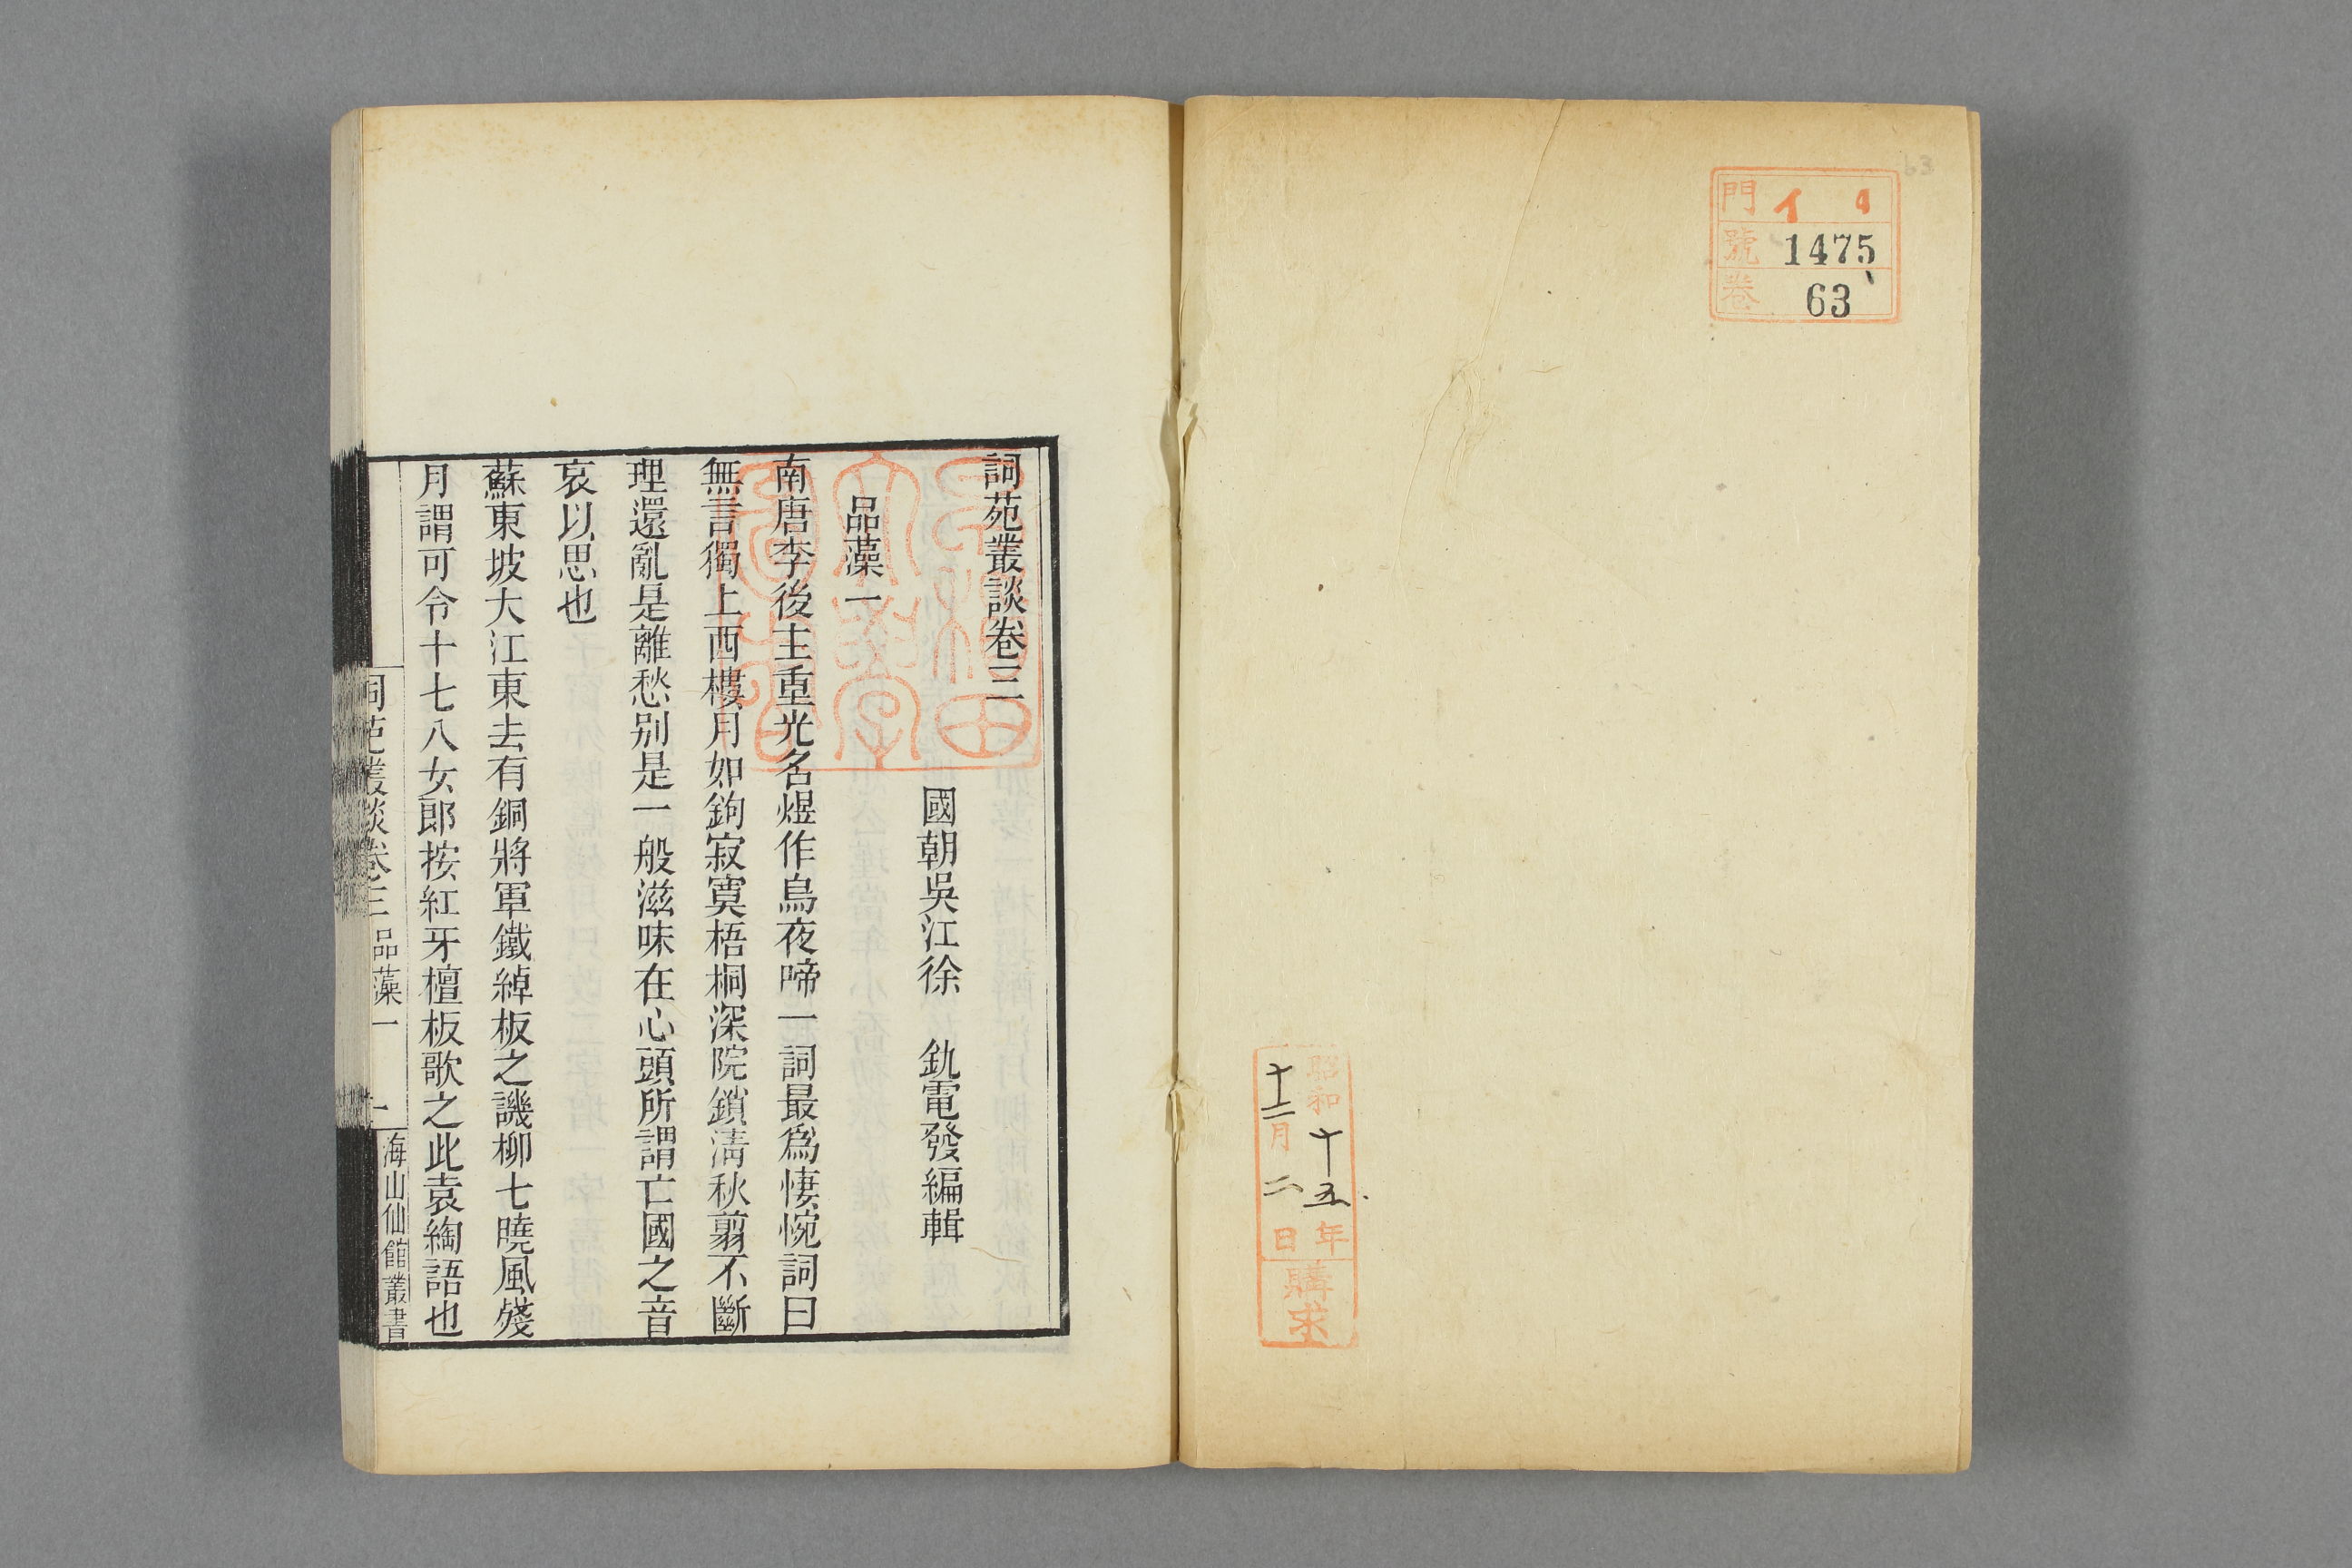 63
門 イ 4
號 1475
卷 63
昭和十五年
十二月二日
購求
詞苑叢談卷三
國朝吳江徐 釚電發編輯
品藻一
南唐李後主重光名煜作烏夜啼一詞最爲悽惋詞曰
無言獨上西樓月如鉤寂寞梧桐深院鎖淸秋翦不斷
理還亂是離愁别是一般滋味在心頭所謂亡國之音
哀以思也
蘇東坡大江東去有銅將軍鐵綽板之譏柳七曉風殘
月謂可令十七八女郎按紅牙檀板歌之此袁綯語也
詞苑叢談卷三 品藻一 一 海山仙館叢書
早稲田
大學
圖書